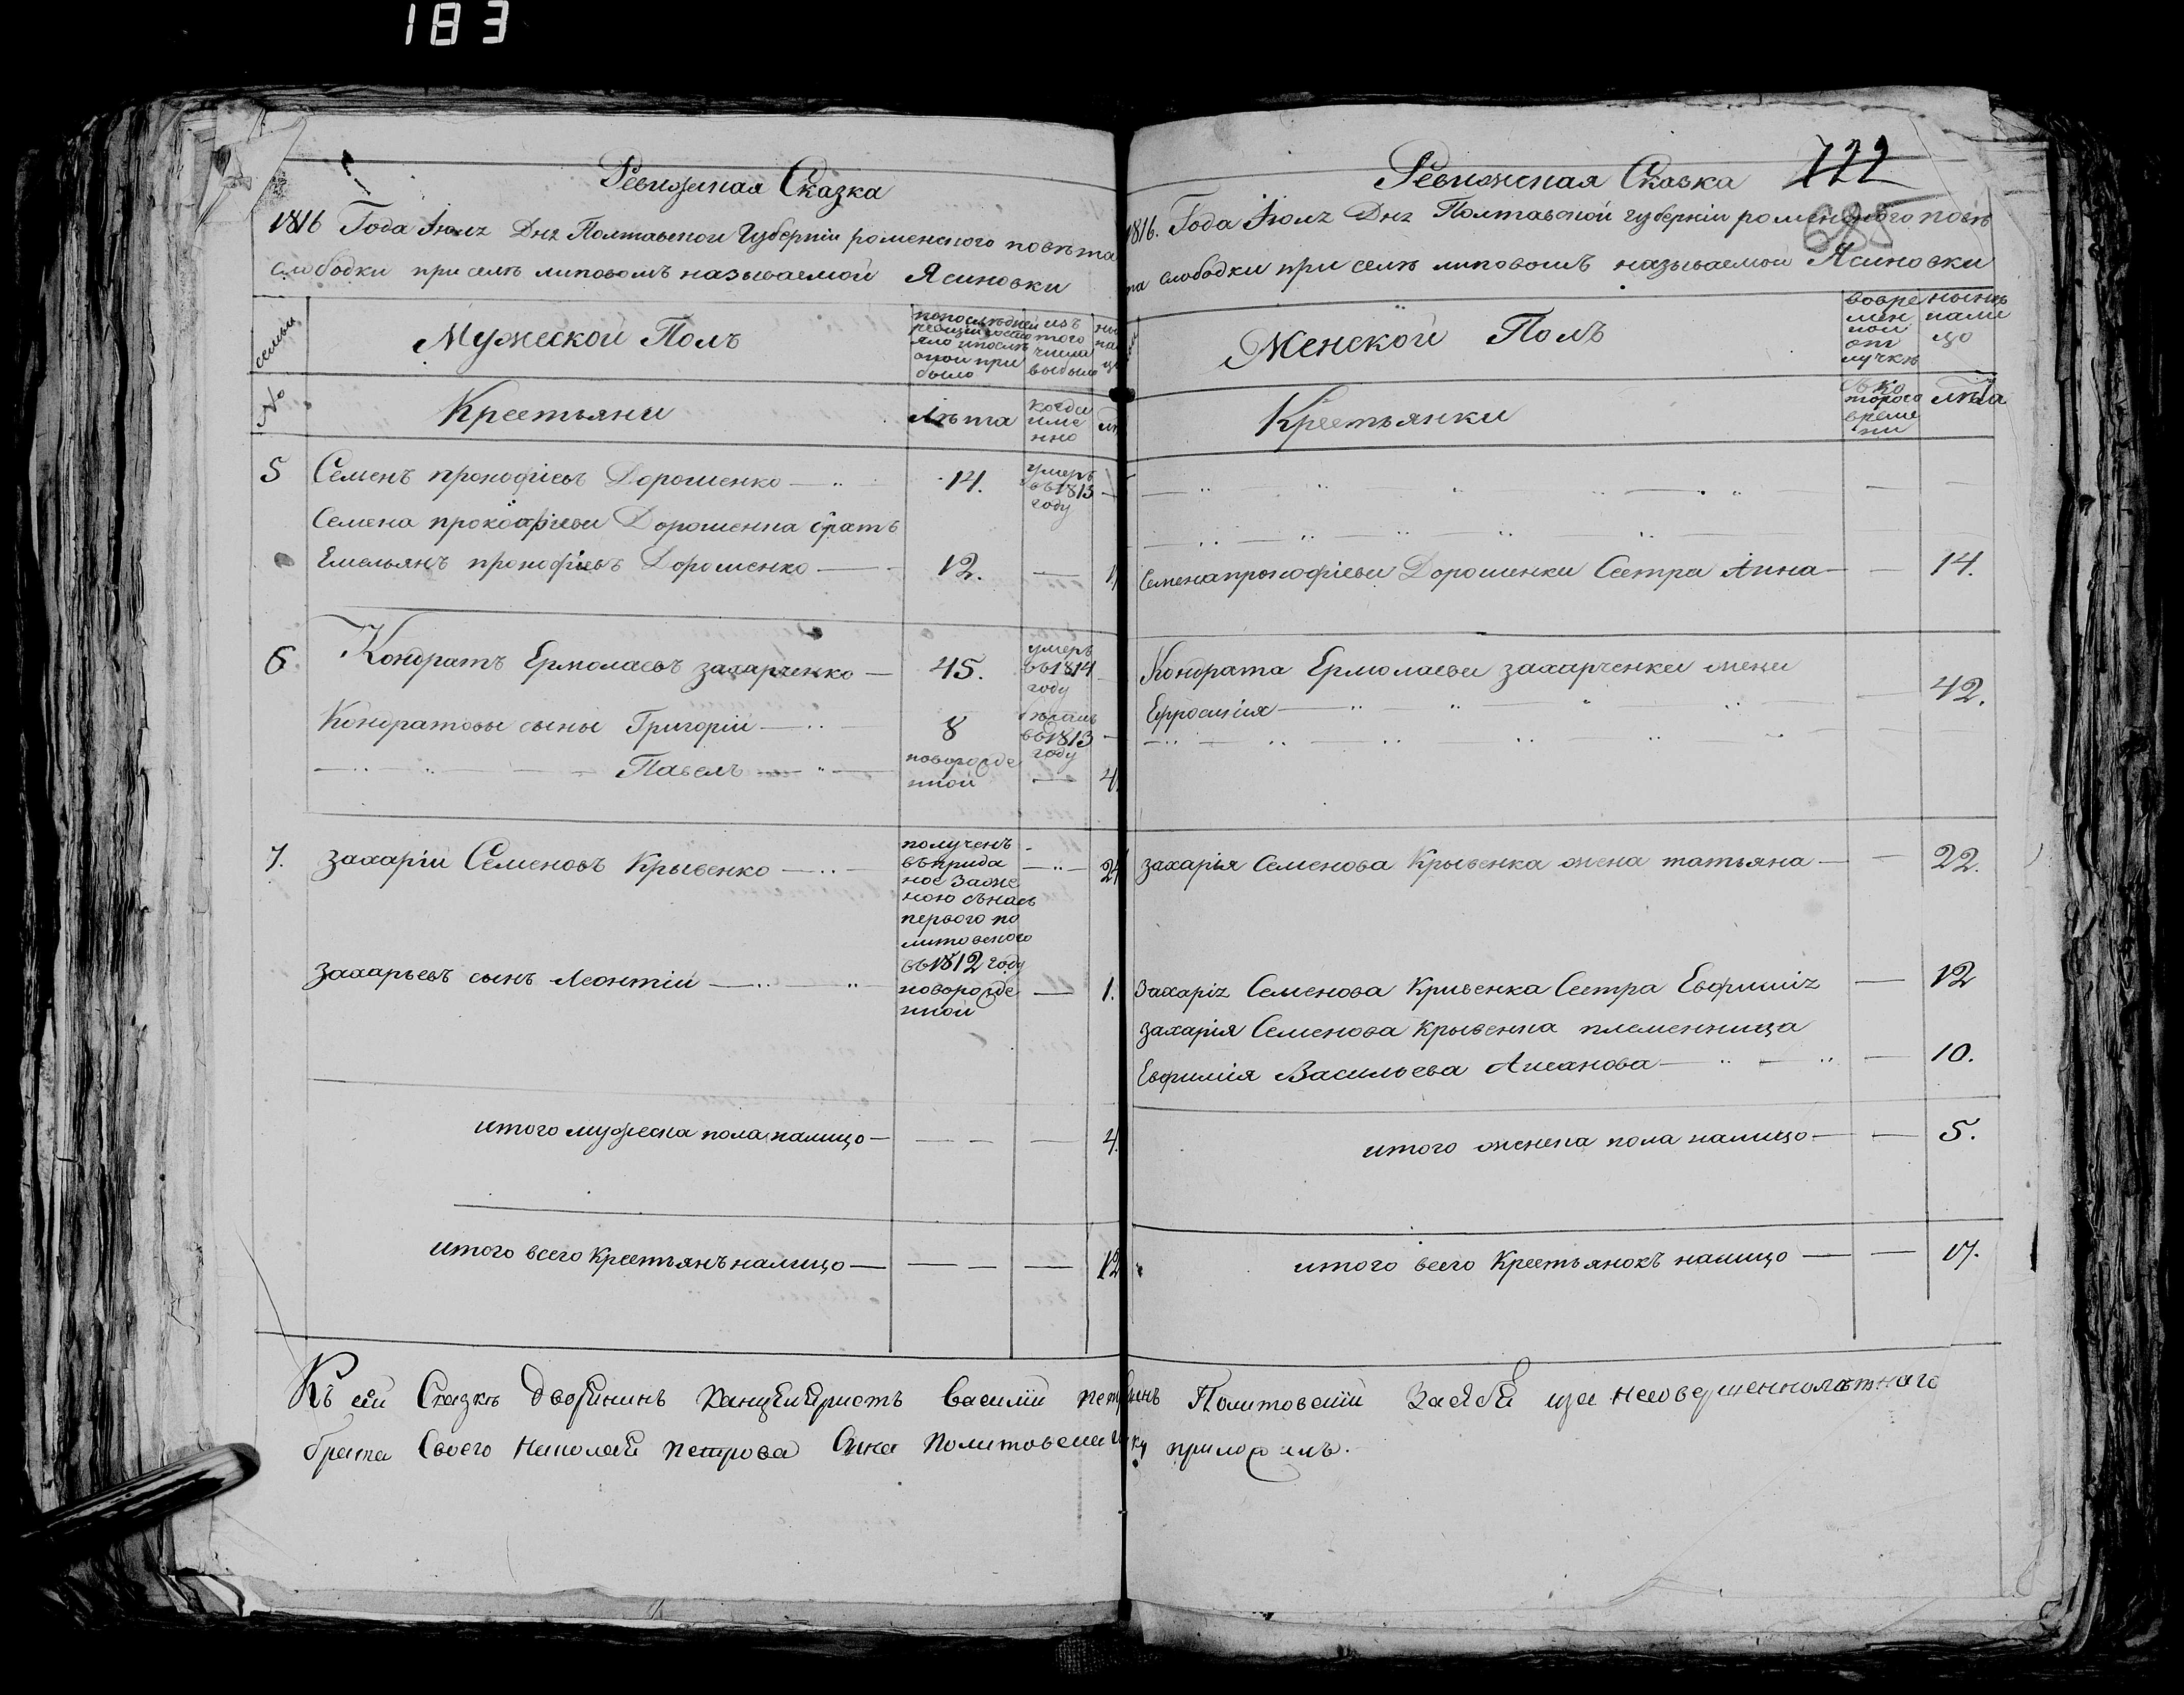 183
Ревижская Сказка
1816 Года Июля Дня Полтавской Губернии роменского повѣта
слободки при селѣ липовомъ называемой Ясиновки
семьи
Мужеской Полъ
попослѣдней ревизии состояло ипослѣ оной прибыло
изъ того числа выбыло
№
Крестьяни
Лѣта
когда имено
5 Семенъ прокофіевъ Дорошенко 14. умеръ въ 1813 году
Семена прокофіева Дорошенка братъ
Емельянъ прокофіевъ Дорошенко 12.
6 Кондратъ Ермолаевъ захарченко 45. умеръ въ 1814 году
Кондратовы сыны Григорій 8 въ 1813 году
Павелъ новорожденной 4.
7. захарій Семеновъ Крывенко полученъ въ приданое за женою 24
первого политовского въ 1812 году
захарьевъ сынъ Леонтій новорожденной 1.
итого мужеска пола налицо 4.
итого всего Крестьянъ налицо 12
722
685
Ревижская Сказка
1816. Года Июля Дня Полтавской губерніи роменского повѣ
та слободки при селѣ липовомъ называемой Ясиновки
Женской Полъ
во временной отлучкѣ
нынѣ налицо
Крестьянки
съ которого времени
лѣта
Семена прокофіева Дорошенка Сестра Анна 14.
Кондрата Ермолаева захарченка жена
Ефросинія 42.
захарія Семенова Крывенка жена татьяна 22.
Захарія Семенова Кривенка Сестра Евфимія 12
захарія Семенова Крывенка племенница
Евфимія Васильева 10.
итого женска пола налицо 5.
итого всего Крестьянокъ налицо 17.
Къ сей Сказкѣ дворянинъ Канцеляристъ Василій петровъ сынъ Политовский За себя иза несовершеннолѣтнаго
брата Своего Николая петрова Сина Политовскаго руку приложилъ.